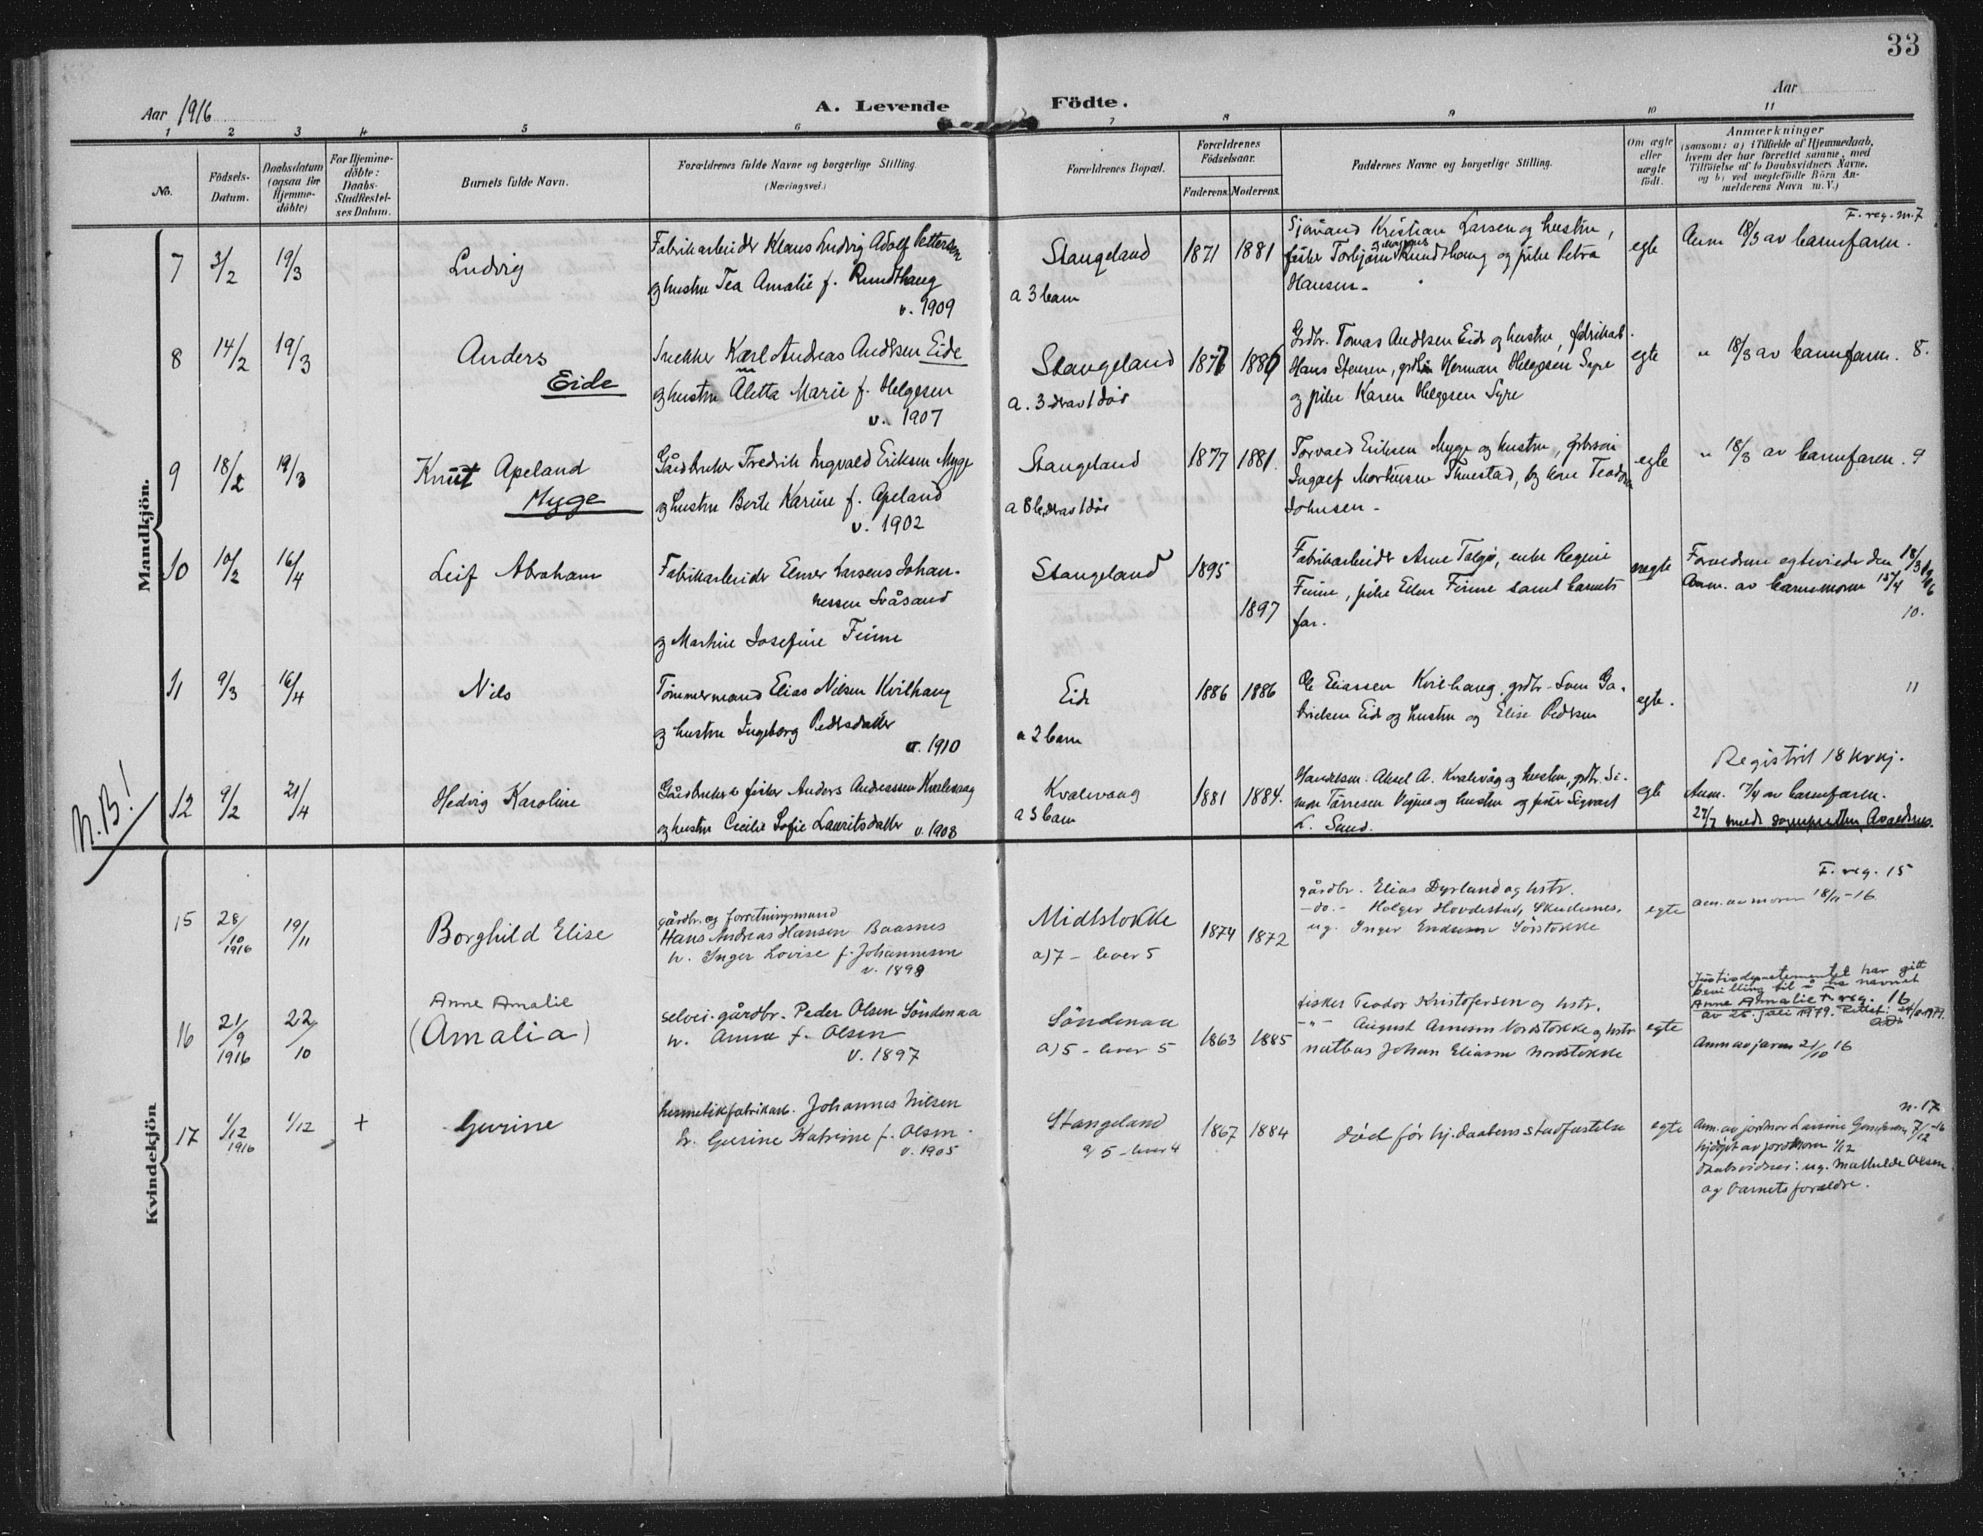 33
Aar 1916
A. Levende Födte.
Aar
1 2 3 4 5 6 7 8 9 10 11
No.
Födsels-Datum.
Daabsdatum (ogsaa for Hjemme-döbte)
For Hjemme-döbte: Daabs-Stadfæstel-ses Datum.
Barnets fulde Navn.
Forældrenes fulde Navne og borgerlige Stilling.
(Næringsvei.)
Forældrenes Bopæl.
Forældrenes Födselsaar.
Faderens. Moderens.
Faddernes Navne og borgerlige Stilling.
Om ægte eller uægte födt.
Anmærkninger
(saasom: a) i Tilfælde af Hjemmedaab, hvem der har forrettet samme, med Tilföielse af to Daabsvidners Navne, og b) ved uægtefödte Börn An-melderens Navn m. V.)
Mandkjön.
F. reg. nr. 7
7 3/2 19/3 Ludvig
Fabrikarbeider Klaus Ludvig Adolf Pettersen
og hustru Tea Amalie f. Rundhaug
v. 1909
Stangeland
a 3 barn
1871 1881
Sjømand Kristian Larsen og hustru,
fisker Torbjørn Rundhaug og pike Petra
Hansen.
egte
Anm 18/3 av barnefaren.
8 14/2 19/3 Anders
Eide
Snekker Karl Andreas Andersen Eide
og hustru Aletta Marie f. Helgesen
v. 1907
Stangeland
1877 1886
Grdbr. Tomas Andersen Eide og hustru, fabrikarb.
Hans Stensen, grdbr. Herman Helgesen Syre
og pike Karen Helgesen Syre
egte
" 18/3 av barnefaren. 8.
9 18/2 19/3 Knut Apeland
Myge
Gårdbruker Fredrik Ingvald Eriksen Myge
og hustru Berte Karine f. Apeland
v. 1902
Stangeland
1877 1881.
Torvald Eriksen Myge og hustru,
Ingolf Mortensen Tuestad,
Johnsen.
egte
" 18/3 av barnefaren. 9
10 10/2 16/4 Leif Abraham
Fabrikarbeider Elmer Larsens Johan-
nessen Svåsand
og Martine Josefine Finne
Stangeland
1895
1897
Fabrikarbeider Arne Talgø, enke Regine
Finne, pike Ellen Finne samt barnets
far.
uegte
Forældrene egteviede den 18/3 1916
Anm. av barnemoren 15/4
10.
11 9/3 16/4 Nils
Tømmermand Elias Nilsen Kvilhaug
og hustru Ingeborg Pedersdatter
v. 1910
Eide
a 2 barn
1886 1886
Ole Eliassen Kvilhaug, grdbr. Sven Ga-
brielsen Eide og hustru og Elise Pedersen
egte.
11
Registrit 18 kvkj.
N.B!
12 9/2 21/4 Hedvig Karoline
Gårdbruker & fisker Anders Andreassen Kvalevaag
og hustru Cecilie Sofie Lauritsdatter v. 1908
Kvalevaag
a 3 barn
1881 1884.
Handelsm. Aksel A. Kvalevåg og hustru, grdbr. Si-
mon Tørresen Vigene og hustru og fisker Sigvart
L. Sund.
egte
Anm. 17/4 av barnefaren.
Kvindekjön
F. reg. 15
15 28/10 1916 19/11 Borghild Elise
gårdbr. og forretningsmand
Hans Andreas Hansen Baasnes
h. Inger Lovise f. Johannesen
v. 1899
Midtstokke
a) 7 - lever 5
1874 1872
gårdbr. Elias Dyrland og hstr.
- do. - Holger Hovdestad, Skudesnes.
ug. Inger Endresen Sørstokke
egte
anm. av moren 18/11-16
16 21/9 1916 22/10 Anne Amalie
(Amalia)
selvei. gårdbr. Peder Olsen Söndenaa
h. Anna f. Olsen
v. 1897
Söndenaa
a) 5 - lever 5
1863 1885
fisker Teodor Kristofersen og hstr.
- " - August Arnesen Nordstokke og hstr
matbas Johan Eliassen Nordstokke
egte
Justisdepartementet har gitt
bevilling til å ta navnet
Anne Amalie F. reg. 16
av 25. juli 1979.
Anm av faren 21/10 16
n. 17
17 1/12 1916 1/12 + Gurine
hermetikfabrikarb. Johannes Nilsen
h. Gurine Katrine f. Olsen
v. 1905
Stangeland
a) 5 - lever 4
1867 1884
død før hj. daabens stadfæstelse
egte
Anm. av jordmor 7/12-16
hjdøpt av jordmoren 1/12
daabsvidner: ug. Mathilde Olsen
og barnets forældre.